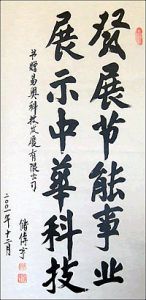 發展节能事业
展示中華科技
书赠易奥科技发展有限公司
储传亨
二〇〇一年十二月